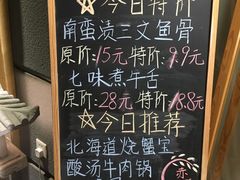 ☆今日特价
南蛮渍三文鱼骨
原价:15元特价:9.9元
七味煮牛舌
原价:28元特价:18.8元
☆今日推荐
北海道烧蟹宝
酸汤牛肉锅
赤